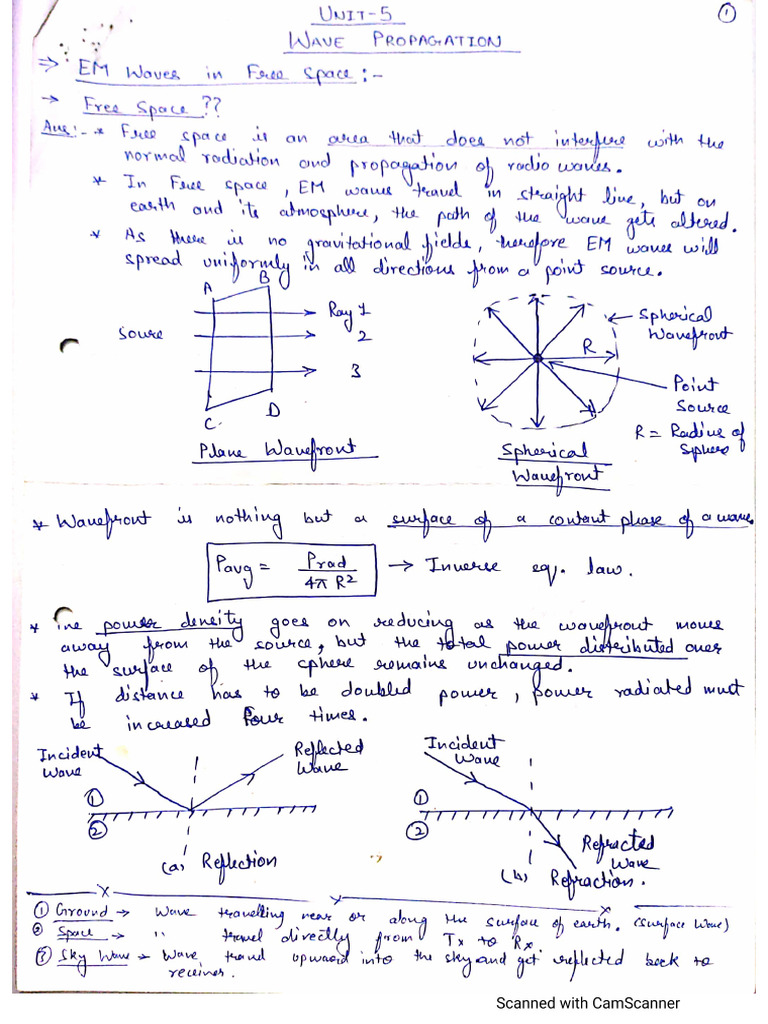 UNIT-5
①
WAVE PROPAGATION
⇒ EM Waves in Free Space :-
→ Free Space ??
Ans:- * Free space is an area that does not interfere with the
normal radiation and propagation of radio waves.
* In Free space, EM waves travel in straight line, but on
earth and its atmosphere, the path of the wave gets altered.
* As there is no gravitational fields, therefore EM waves will
spread uniformly in all directions from a point source.
A B
Ray 1
Soure
2
3
C D
Plane Wavefront
Spherical
Wavefront
R
Point
Source
R = Radius of
Sphere
Spherical
Wavefront
* Wavefront is nothing but a surface of a contant phase of a wave.
Pavg = Prad / 4π R² → Inverse eq. law.
* The power density goes on reducing as the wavefront moves
away from the source, but the total power distributed over
the surface of the cphere remains unchanged.
* If distance has to be doubled power, power radiated must
be increased Four times.
Incident
Wave
Reflected
Wave
①
②
(a) Reflection
Incident
Wave
①
②
Refracted
Wave
(b) Refraction.
① Ground → Wave travelling near or along the surface of earth. (Surface Wave)
② Space → " travel directly from Tx to Rx.
③ Sky Wave → Wave travel upward into the sky and get reflected back to
receiver.
Scanned with CamScanner